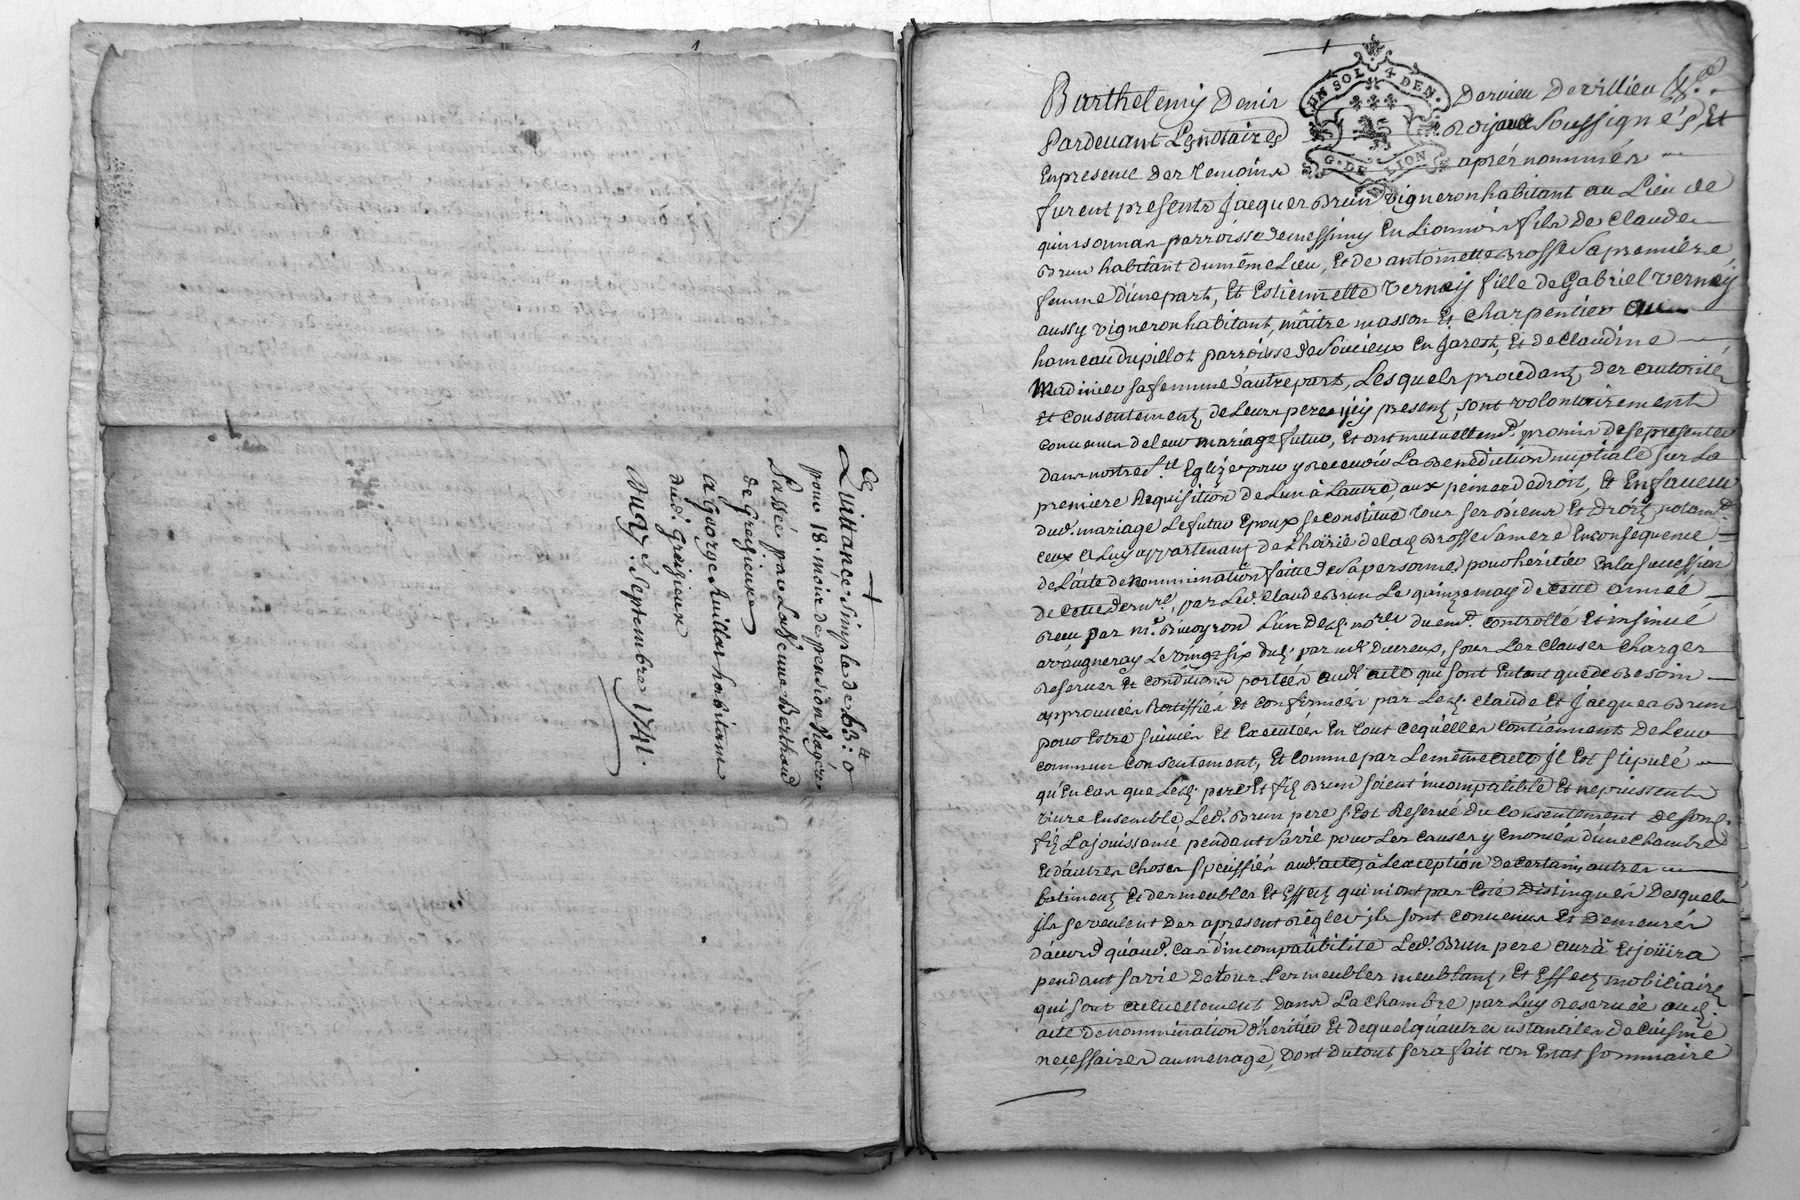 1
Ce
Quittance Simple de 63:ᵗᵗ 0
pour 18. mois de pension viagere
Passée par La Sᵉ une Berthaud
de Greizieux
a George Quillon habitant
dud. Greizieux
Du 27.ᵉ Septembre 1741.
1
UN SOL 4 DEN.
G. DE LION
Barthelemy Denis Dervieu Devillieu &ᶜᵃ
Pardevant Les notaires Royaux Soussignés, Et
En presence des temoins aprés nommés
furent presents Jacques Brun vigneron habitant au Lieu de
quinsonnas parroisse de messimy En Lionnois fils de Claude
Brun habitant du même Lieu, Et de antoinette Brosse Sa premiere
femme d'une part, Et Estiennette Verney fille de Gabriel Verney
aussy vigneron habitant, maître masson Et Charpentier au
hameau du pillot parroisse de Soucieux En Jarest, Et de Claudine
Madinier sa femme d'autre part, Lesquels procedant des autorité
Et consentement de Leurs peres icy present, sont volontairement
convenus de leur mariage futur, Et ont mutuellemᵗ. promis de se presenter
dans nostre Sᵗᵉ Eglize pour y Recevoir La Benediction nuptiale sur La
premiere Requisition de L'un à L'autre, aux peines de droit, Et En faveur
dud. mariage Le futur Epoux se constitue tous ses Biens Et droits notamᵗ.
ceux a Luy appartenant de L'hoirie de lad. Brosse Sa mere En consequence
de L'acte de nommination faitte de Sa personne, pour heritier En la succession
de Cette derniᵉʳᵉ, par Led. Claude Brun Le quinze may de cette année
Receu par mᵉ. Brivoyron L'un desd. noʳᵉˢ duemᵗ. controllé Et insinué
a vaugneray Le vingt six dud. par mᵉ Ducreux, sous Les Clauses Charges
Reserves Et conditions portées aud. acte qui sont Entant que de Besoin
approuvées Rattiffiées Et confirmées par Lesd. Claude Et Jacques Brun
pour Estre suivies Et Executées En tout ce qu'elles contiennent de Leur
commun consentement, Et comme par Le même acte Il Est stipulé
qu'En cas que Lesd. pere Et fils Brun soient incompatible Et ne puissent
vivre Ensemble Led. Brun pere s'Est Reservé du consentement de sond.
fils La jouissance pendant Sa vie pour Les causes y Enoncées d'une Chambre
Et d'autres choses speciffiées aud. acte, à L'exception de certains autres
batiments Et des meubles Et Effets qui n'i ont pas Esté distingués Desquels
ils se veulent des apresent Regler ils sont convenus Et demeurés
d'accord qu'aud. cas d'incompatibilité Led. Brun pere aura Et joüira
pendant sa vie de tous Les meubles meublants, Et Effets mobiliaires
qui sont actuellement dans La Chambre par Luy Reservée aud.
acte de nommination d'heritier Et de quelqu'autres ustanciles de Cuisine
necessaires au menage, dont du tout sera fait un Estat sommaire